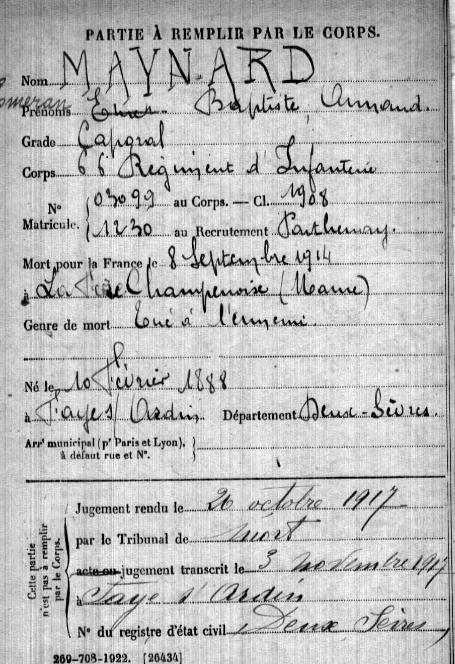 PARTIE À REMPLIR PAR LE CORPS.
Nom MAYNARD
Prénoms Baptiste Armand.
Grade Caporal
Corps 66e Régiment d'Infanterie
N° Matricule. 03099 au Corps. — Cl. 1908
1230 au Recrutement Parthenay.
Mort pour la France le 8 Septembre 1914
à La Fère Champenoise (Marne)
Genre de mort Tué à l'ennemi.
Né le 10 Février 1888
à Faye s/ Ardin Département Deux-Sèvres.
Arrt municipal (pr Paris et Lyon), à défaut rue et N°.
Cette partie n'est pas à remplir par le Corps.
Jugement rendu le 26 octobre 1917
par le Tribunal de Niort
acte ou jugement transcrit le 3 novembre 1917
à Faye s/ Ardin
N° du registre d'état civil Deux Sèvres
269-708-1922. [26434]